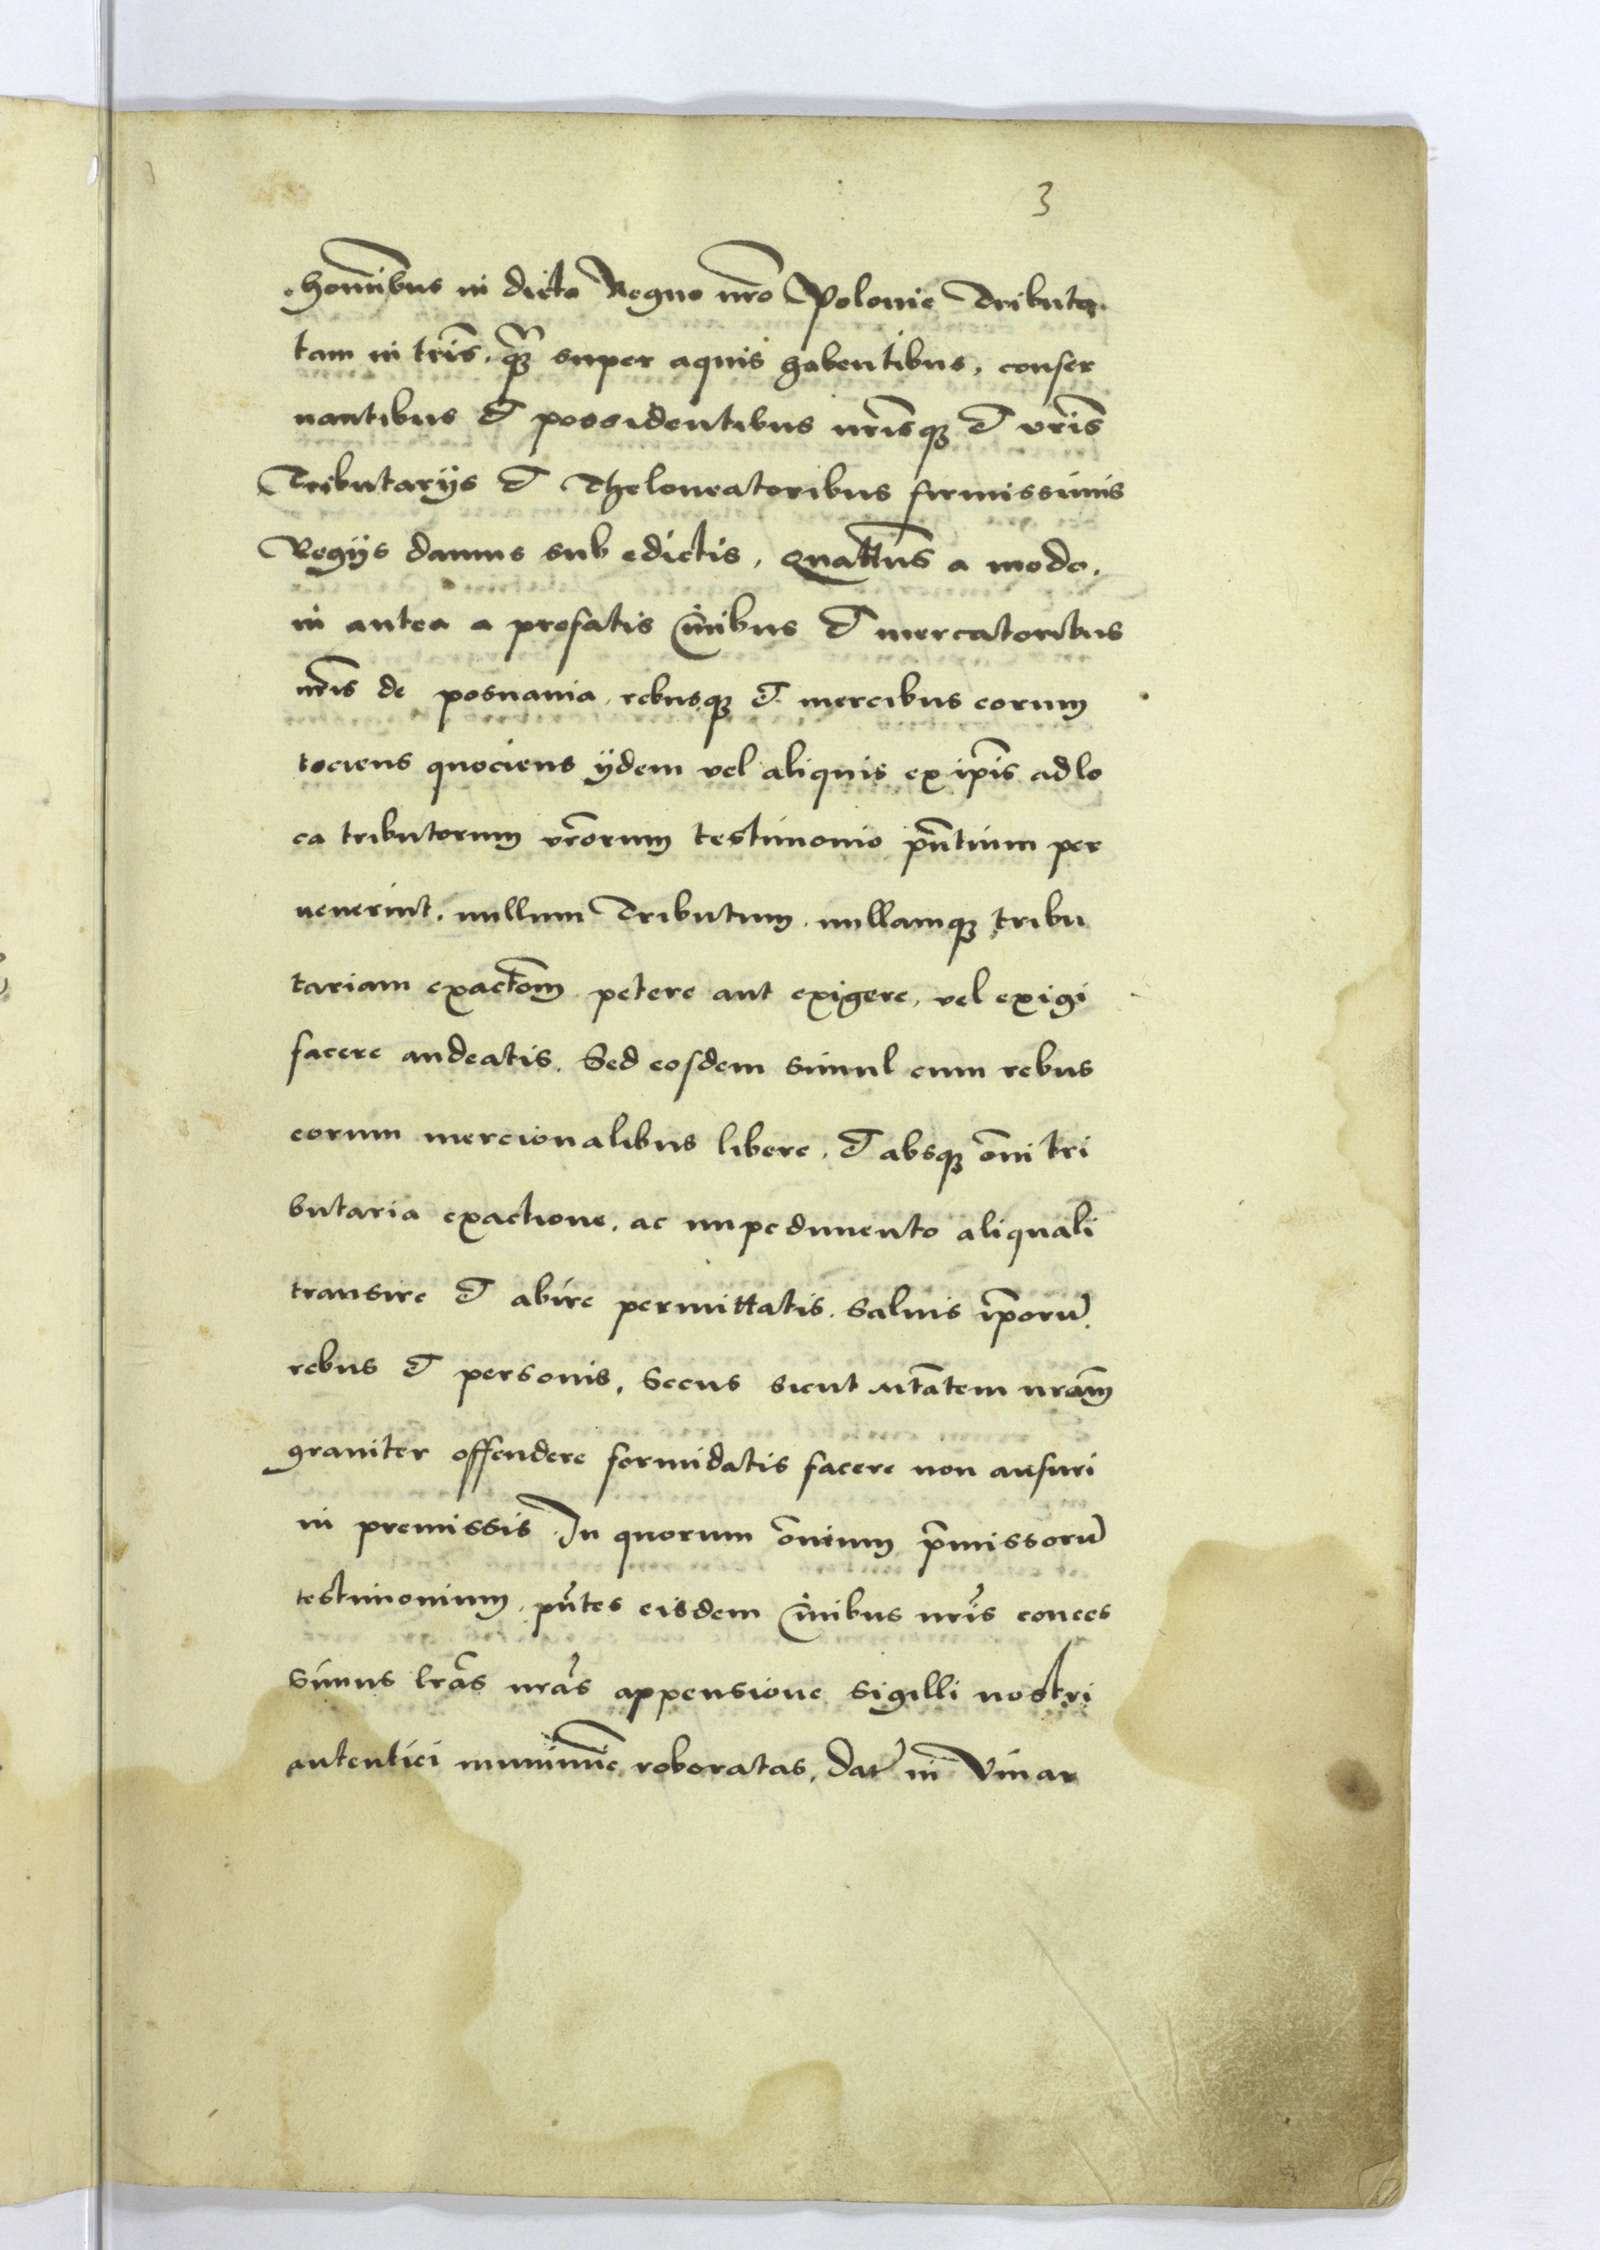 3
hominibus in dicto Regno nro Polonie Tributa
tam in tris. qȝ super aquis habentibus, conser
uantibus et possidentibus nrisqȝ et vris
Tributarijs et Theloneatoribus firmissimis
Regijs damus sub edictis, Quattenus a modo.
in antea a prefatis Ciuibus et mercatoribus
nris de posnania. rebusqȝ et mercibus eorum
tociens quociens ijdem vel aliquis ex ipis ad lo
ca tributorum vrorum testimonio pntium per
uenerint. nullum Tributum. nullamqȝ tribu
tariam exactom petere aut exigere, vel exigi
facere audeatis. Sed eosdem simul cum rebus
eorum mercionalibus libere. et absqȝ omi tri
butaria exactione. ac impedimento aliquali
transire et abire permittatis. Saluis iporu
rebus et personis. Secus sicut Mtatem nram
grauiter offendere formidatis facere non ausuri
in premissis. In quorum omium pmissoru
testimonium. pntes eisdem Ciuibus nris conces
simus lras nras appensione sigilli nostri
autentici munimie roboratas. Dat in Vinar